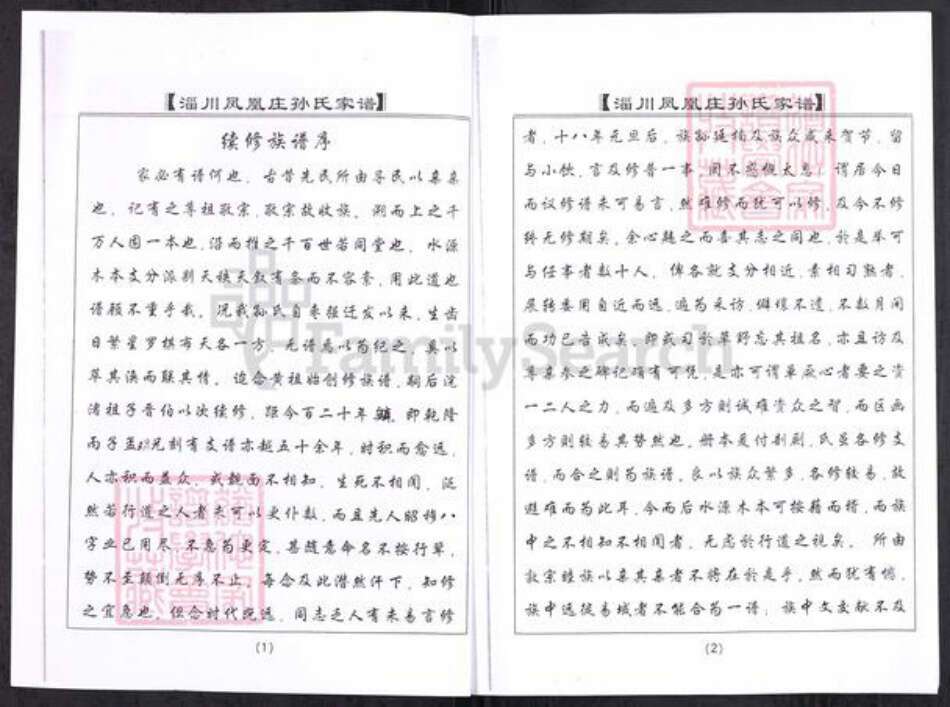 【淄川凤凰庄孙氏家谱】
续修族谱序
家必有谱何也，古昔先民所由导民以亲亲
也，记有之尊祖敬宗，敬宗故收族，溯而上之千
万人固一本也，沿而推之千百世若同堂也，水源
木本支分派别天族天叙有条而不容紊，用此道也
谱顾不重乎哉，况我孙氏自枣强迁发以来，生齿
日繁星罗棋布天各一方，无谱焉以为纪之，莫以
萃其涣而联其情，迨念黄祖始创修族谱，嗣后浣
渚祖子晋伯以次续修，距今百二十年，即乾隆
丙子孟兄刻有支谱亦越五十余年，时积而愈远，
人亦积而益众，或觌面不相知，生死不相闻，泛
然若行道之人者夫可以更仆数，而且先人昭穆八
字业已用尽，不急为更定，甚随意命名不按行辈，
势不至颠倒无序不止，每念及此潸然汗下，知修
之宜急也，但念时代既远，同志乏人有未易言修
(1)
【淄川凤凰庄孙氏家谱】
者，十八年元旦后，族孙廷柏及族众咸来贺节，留
与小饮，言及修普一事，罔不感慨太息，谓居今日
而议修谱未可易言，然难修而犹可以修，及今不修
终无修期矣，余心韪之而喜其志之同也，於是举可
与任事者数十人，俾各就支分相近，素相习熟者，
展转委用自近而远，遍为采访，僻壤不遗，不数月间
而功已告成矣，即或习於草野忘其祖名，亦且访及
尊亲参之碑记确有可凭，是亦可谓单厥心者要之资
一二人之力，而遍及多方则诚难资众之智，而区画
多方则较易其势然也，册本爰付剞劂，氏虽各修支
谱，而合之则为族谱，良以族众繁多，各修较易，故
避难而为此耳，今而后水源木本可按籍而稽，而族
中之不相知不相闻者，无虑於行道之视矣，所由
敦宗睦族以亲其亲者不将在於是乎，然而犹有憾，
族中远徙易域者不能合为一谱；族中文献不及
(2)
FamilySearch